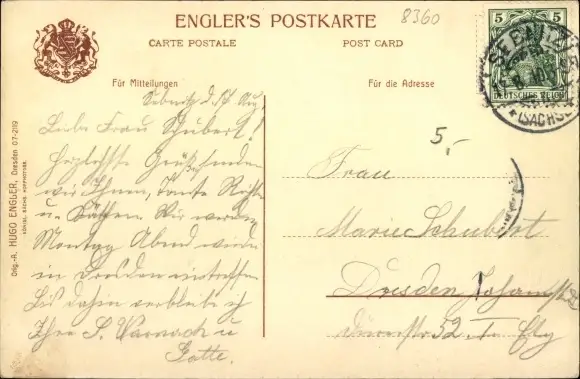 ENGLER'S POSTKARTE
8360
CARTE POSTALE
POST CARD
Für Mitteilungen
Für die Adresse
5 5
DEUTSCHES REICH
SEBNITZ
(SACHSEN)
Orig.-A. HUGO ENGLER, Dresden 07-2119
KÖNIGL. SÄCHS. HOFPHOTOGR.
Sebnitz d. 14. Aug
Liebe Frau Schubert!
Herzlichste Grüße senden
wir Ihnen, Tante
u. Käthen. Wir werden
Montag Abend wieder
in Dresden eintreffen
Bis dahin verbleibe ich
Ihre S. u
Gatte.
5,-
Frau
Marie Schubert
Dresden, Johannst.
Dürerstr. 52. I. Etg